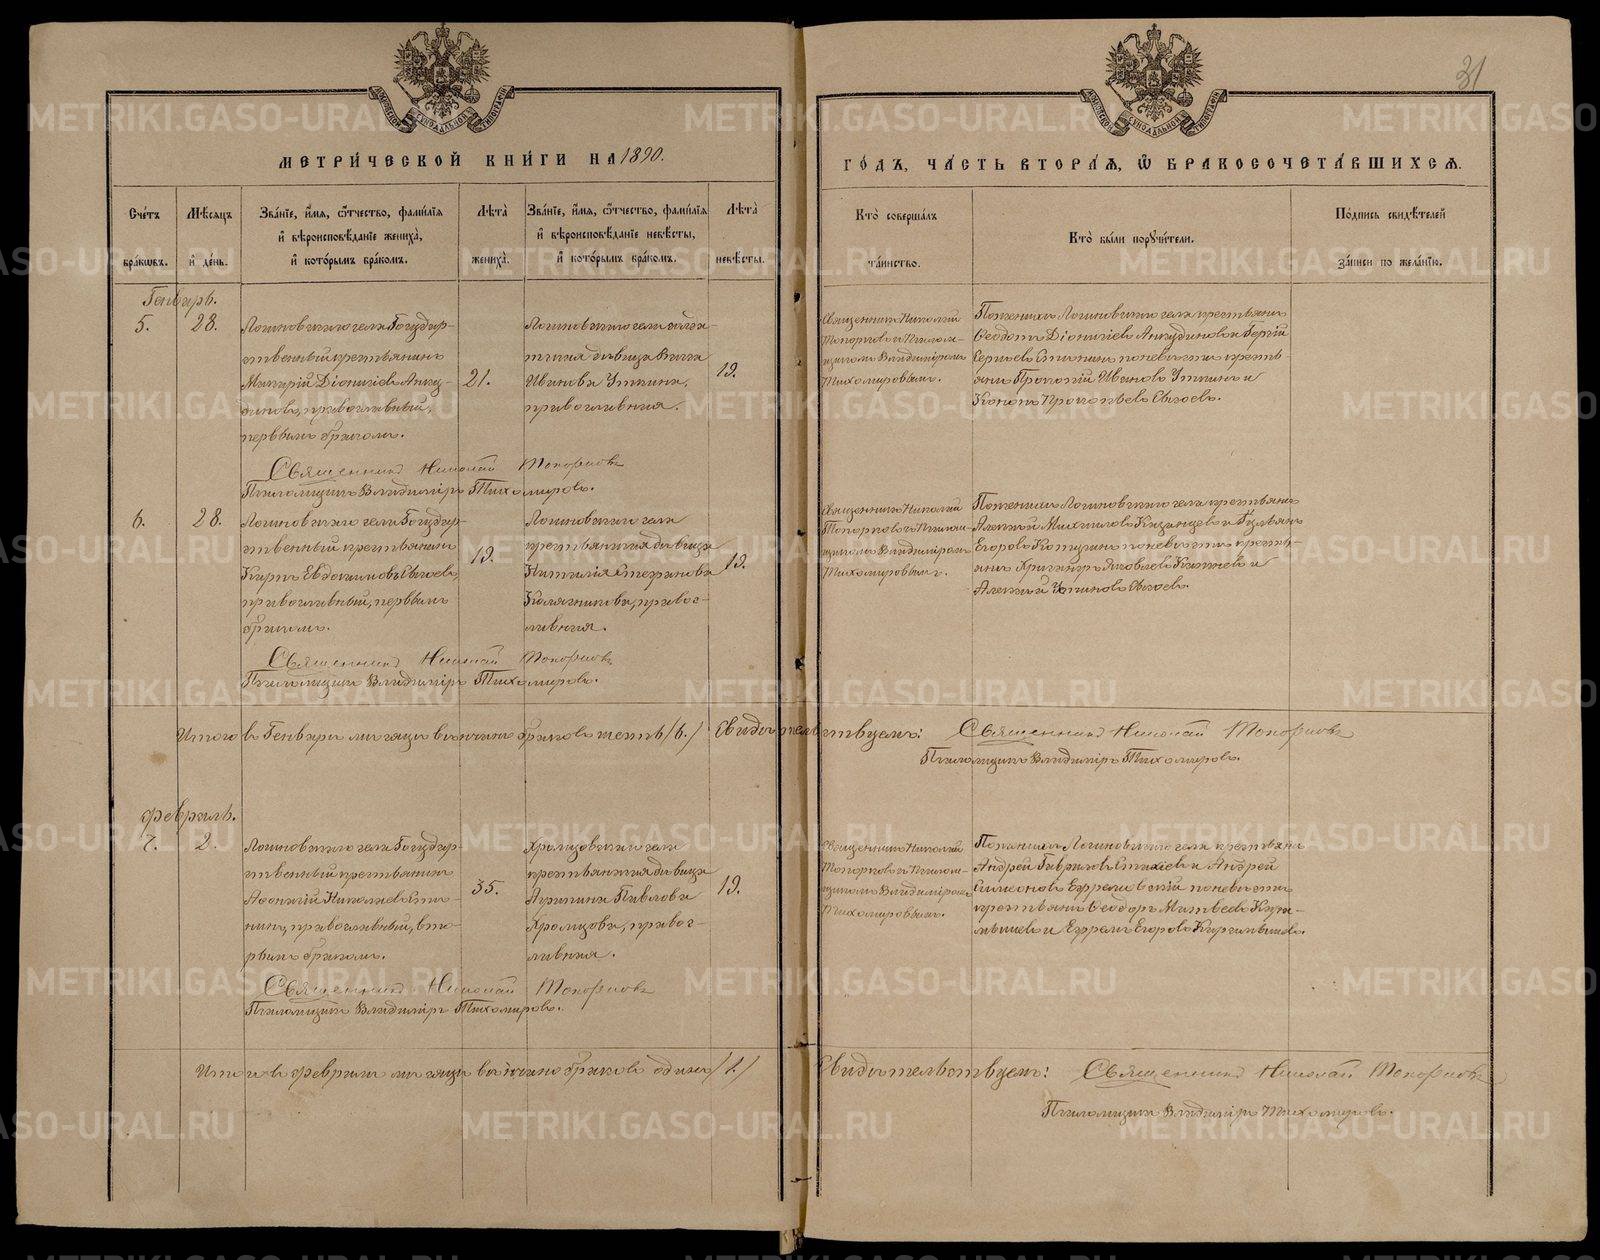 31
МЕТРИ́ЧЕСКОЙ КНИ́ГИ НА 1890.
ГО́ДЪ, ЧА́СТЬ ВТОРА́Ѧ, Ѽ БРАКОСОЧЕТА́ВШИХСѦ.
Сче́тъ бра́кѡвъ.
Мѣ́сяцъ и де́нь.
Зва́нїе, и́мѧ, ѻ́тчество, фами́лїѧ и вѣроисповѣ́данїе жениха̀, и кото́рымъ бра́комъ.
Лѣта̀ жениха̀.
Зва́нїе, и́мѧ, ѻ́тчество, фами́лїѧ и вѣроисповѣ́данїе невѣ́сты, и кото́рымъ бра́комъ.
Лѣта̀ невѣ́сты.
Кто̀ соверша́лъ та́инство.
Кто̀ бы́ли порꙋчи́тели.
По́дпись свидѣ́телей за́писи по жела́нїю.
Генварь.
5.
28.
Логиновскаго села Государ-
ственный крестьянинъ
Макарій Діонисіевъ Анку-
диновъ, православный,
первымъ бракомъ.
21.
Логиновскаго села
дѣвица
Иванова Уткина,
православная.
19.
Священникъ Николай
Топорковъ и Псалом-
щикомъ Владиміромъ
Тихомировымъ.
По женихѣ Логиновскаго села крестьяне
Ѳеодотъ Діонисіевъ Анкудиновъ и Сергій
Сергѣевъ по невѣстѣ кресть-
яне Прокопій Ивановъ Уткинъ и
Кононъ Прокопьевъ Сысоевъ.
Священникъ Николай Топорковъ
Псаломщикъ Владиміръ Тихомировъ.
6.
28.
Логиновскаго села Государ-
ственный крестьянинъ
Киръ Евдокимовъ Сысоевъ,
православный, первымъ
бракомъ.
19.
Логиновскаго села
крестьянская дѣвица
Наталія Стефанова
Колясникова, правос-
лавная.
19.
Священникъ Николай
Топорковъ и Псалом-
щикомъ Владиміромъ
Тихомировымъ.
По женихѣ Логиновскаго села крестьяне
Алексѣй Казанцевъ и
Егоровъ по невѣстѣ кресть-
яне Яковлевъ и
Алексѣй Сысоевъ.
Священникъ Николай Топорковъ
Псаломщикъ Владиміръ Тихомировъ.
Итого въ Генварѣ мѣсяцѣ вѣнчано браковъ шесть /6./ Свидѣтельствуемъ: Священникъ Николай Топорковъ
Псаломщикъ Владиміръ Тихомировъ.
Февраль.
7.
2.
Логиновскаго села Государ-
ственный крестьянинъ
Аѳонасій Николаевъ Ста-
нинъ, православный, вто-
рымъ бракомъ.
35.
Храмцовскаго села
крестьянская дѣвица
Агрипина Павлова
Храмцова, правос-
лавная.
19.
Священникъ Николай
Топорковъ и Псалом-
щикомъ Владиміромъ
Тихомировымъ.
По женихѣ Логиновскаго села крестьяне
Андрей Гавриловъ и Андрей
Симеоновъ по невѣстѣ
крестьяне Ѳеодоръ Матвѣевъ
и Ефремъ Егоровъ
Священникъ Николай Топорковъ
Псаломщикъ Владиміръ Тихомировъ.
Итого въ Февралѣ мѣсяцѣ вѣнчано браковъ одинъ /1./
Свидѣтельствуемъ: Священникъ Николай Топорковъ
Псаломщикъ Владиміръ Тихомировъ.
METRIKI.GASO-URAL.RU